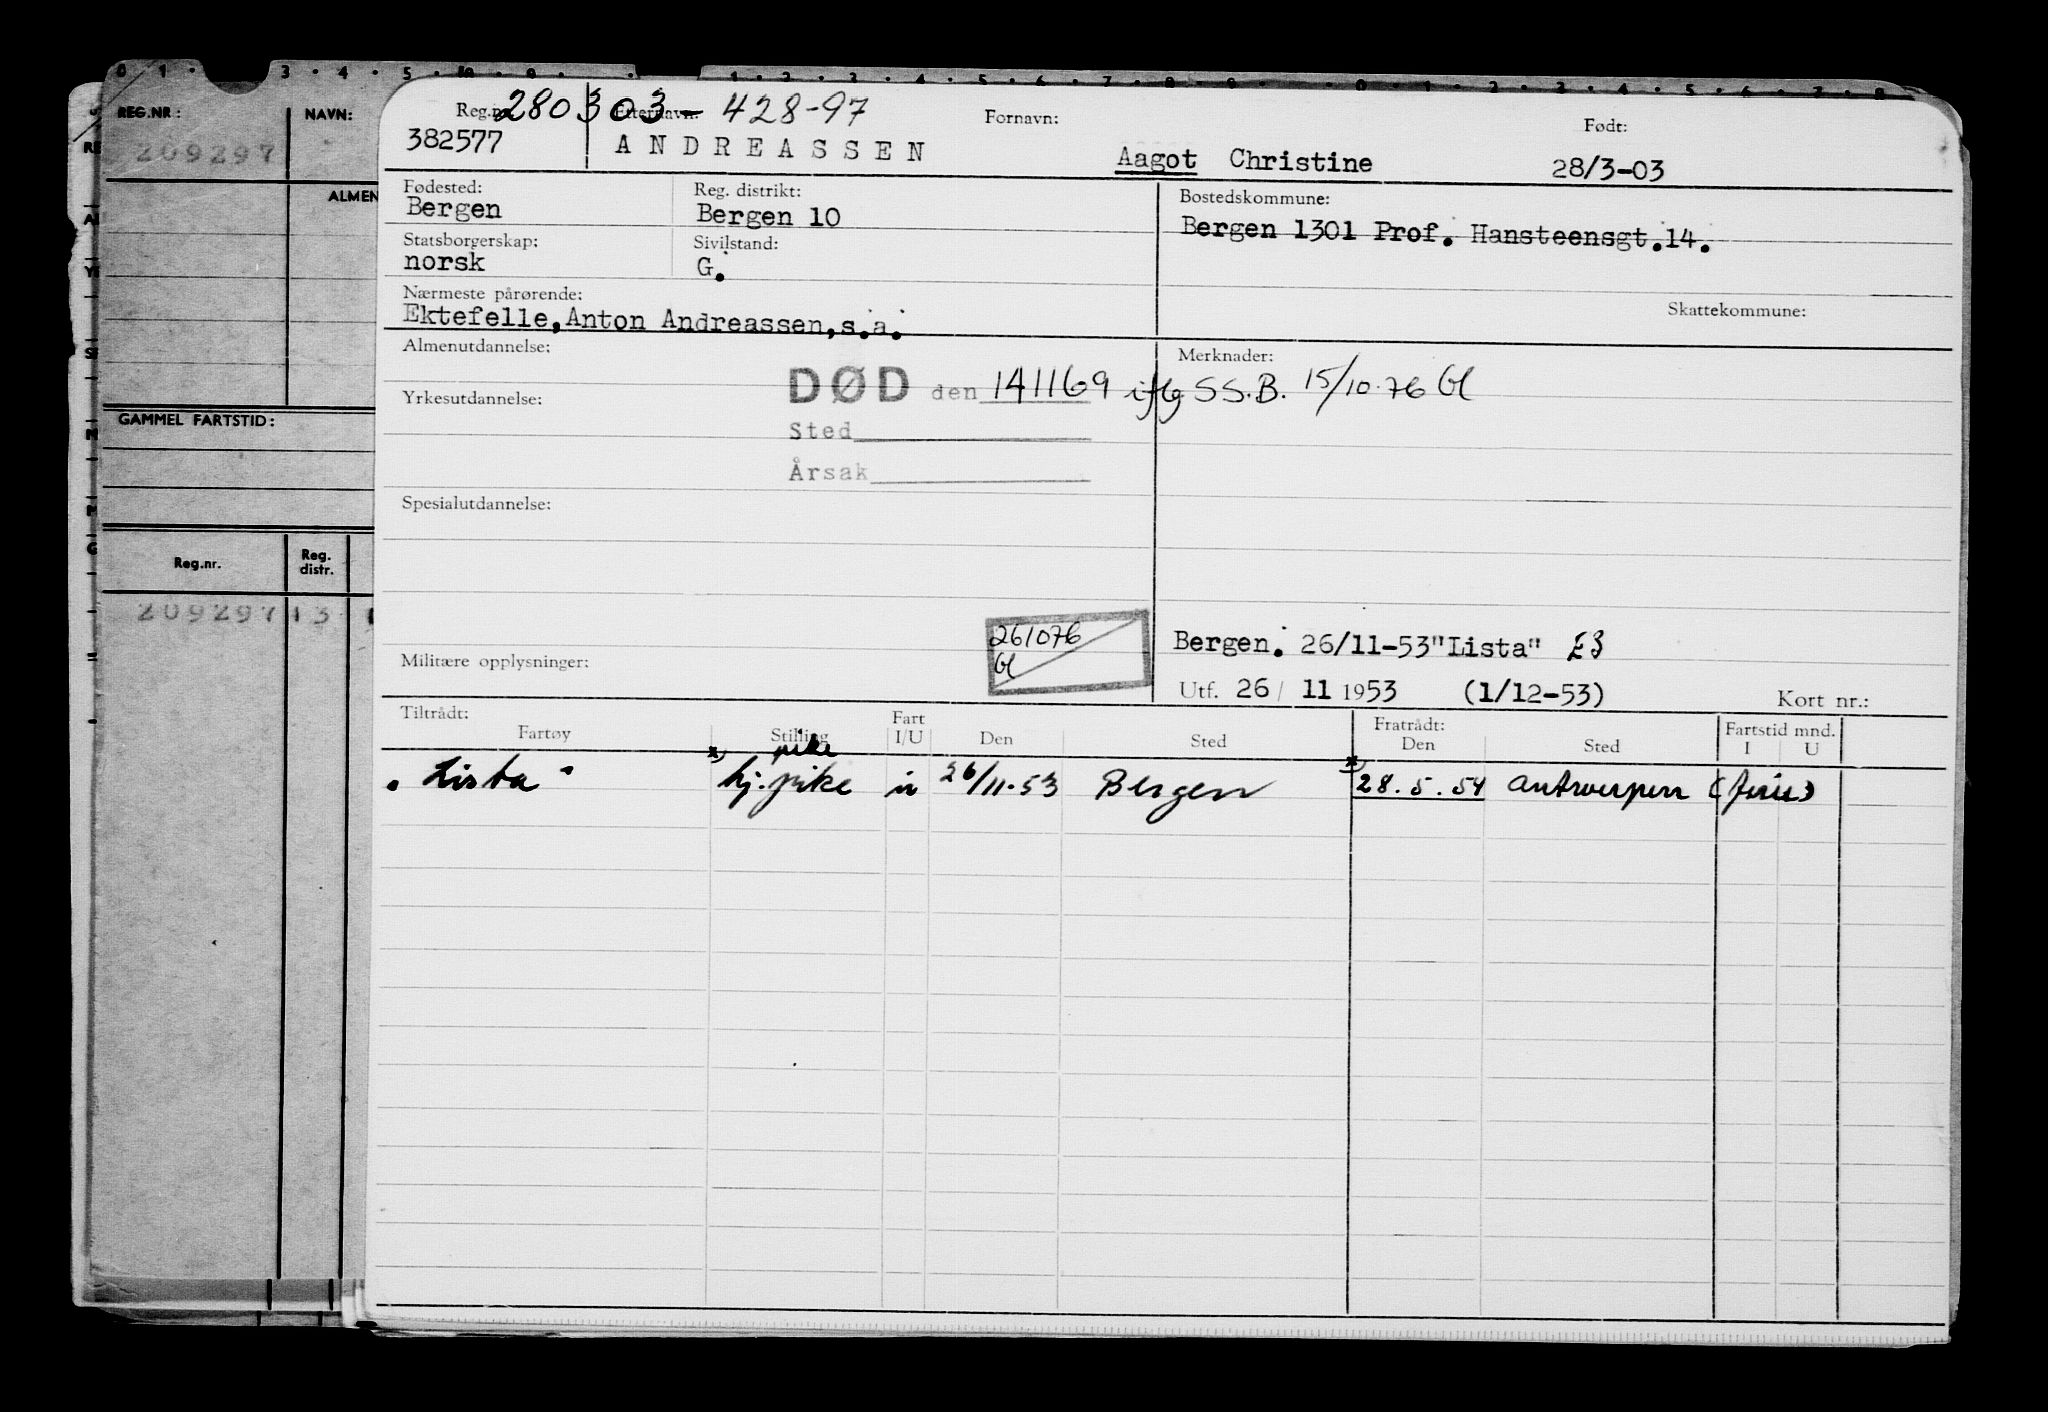 0 1 · 3 · 4 · 5 ·
REG.NR.: NAVN:
209297
ALMEN
GAMMEL FARTSTID:
Reg.nr. Reg. distr.
209297 13
Reg.nr. 280303 - 428-97
Etternavn: Fornavn: Født:
382577 ANDREASSEN Aagot Christine 28/3-03
Fødested: Reg. distrikt: Bostedskommune:
Bergen Bergen 10 Bergen 1301 Prof. Hansteensgt.14.
Statsborgerskap: Sivilstand:
norsk G.
Nærmeste pårørende: Skattekommune:
Ektefelle,Anton Andreassen,s.a.
Almenutdannelse: Merknader:
DØD den 141169 iflg SS.B. 15/10.76 Gl
Yrkesutdannelse:
Sted
Årsak
Spesialutdannelse:
261076
Gl
Bergen. 26/11-53"Lista"
Militære opplysninger:
Utf. 26/ 11 1953 (1/12-53) Kort nr.:
Tiltrådt: Fratrådt: Fartstid mnd.
Fartøy Stilling Fart I/U Den Sted Den Sted I U
pike
"Lista" x) hj.pike u 26/11-53 Bergen x) 28.5.54 Antwerpen (ferie)